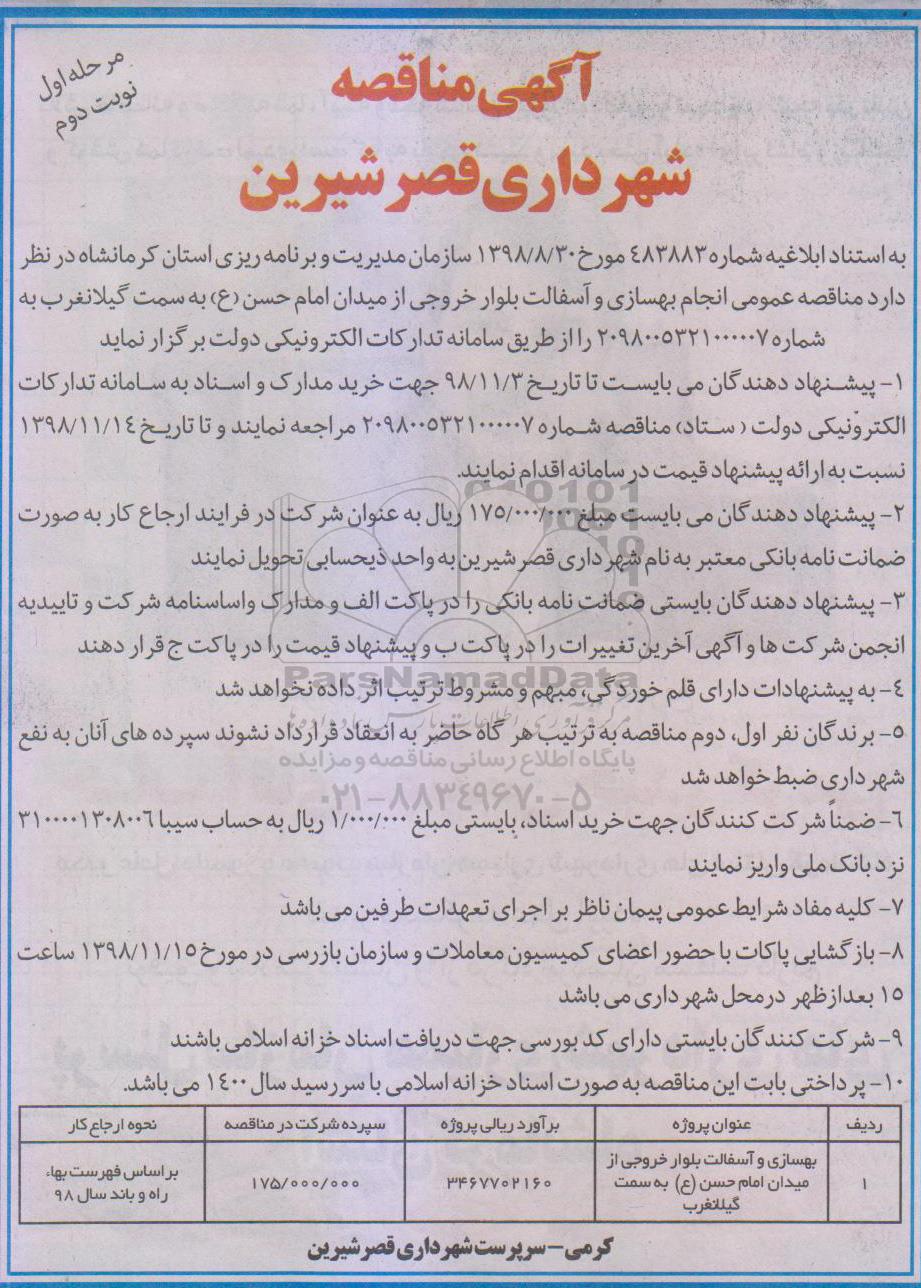 مرحله اول
نوبت دوم
آگهی مناقصه
شهرداری قصرشیرین
به استناد ابلاغیه شماره ٤٨٣٨٨٣ مورخ ١٣٩٨/٨/٣٠ سازمان مدیریت و برنامه ریزی استان کرمانشاه در نظر
دارد مناقصه عمومی انجام بهسازی و آسفالت بلوار خروجی از میدان امام حسن (ع) به سمت گیلانغرب به
شماره ٢٠٩٨٠٠٥٣٢١٠٠٠٠٠٧ را از طریق سامانه تدارکات الکترونیکی دولت برگزار نماید
١- پیشنهاد دهندگان می بایست تا تاریخ ٩٨/١١/٣ جهت خرید مدارک و اسناد به سامانه تدارکات
الکترونیکی دولت ( ستاد) مناقصه شماره ٢٠٩٨٠٠٥٣٢١٠٠٠٠٠٧ مراجعه نمایند و تا تاریخ ١٣٩٨/١١/١٤
نسبت به ارائه پیشنهاد قیمت در سامانه اقدام نمایند.
٢- پیشنهاد دهندگان می بایست مبلغ ١٧٥/٠٠٠/٠٠٠ ریال به عنوان شرکت در فرایند ارجاع کار به صورت
ضمانت نامه بانکی معتبر به نام شهرداری قصرشیرین به واحد ذیحسابی تحویل نمایند
٣- پیشنهاد دهندگان بایستی ضمانت نامه بانکی را در پاکت الف و مدارک واساسنامه شرکت و تاییدیه
انجمن شرکت ها و آگهی آخرین تغییرات را در پاکت ب و پیشنهاد قیمت را در پاکت ج قرار دهند
٤- به پیشنهادات دارای قلم خوردگی، مبهم و مشروط ترتیب اثر داده نخواهد شد
٥- برندگان نفر اول، دوم مناقصه به ترتیب هر گاه حاضر به انعقاد قرارداد نشوند سپرده های آنان به نفع
شهرداری ضبط خواهد شد
٦- ضمناً شرکت کنندگان جهت خرید اسناد، بایستی مبلغ ١/٠٠٠/٠٠٠ ریال به حساب سیبا ٣١٠٠٠٠١٣٠٨٠٠٦
نزد بانک ملی واریز نمایند
٧- کلیه مفاد شرایط عمومی پیمان ناظر بر اجرای تعهدات طرفین می باشد
٨- بازگشایی پاکات با حضور اعضای کمیسیون معاملات و سازمان بازرسی در مورخ ١٣٩٨/١١/١٥ ساعت
١٥ بعدازظهر درمحل شهرداری می باشد
٩- شرکت کنندگان بایستی دارای کد بورسی جهت دریافت اسناد خزانه اسلامی باشند
١٠- پرداختی بابت این مناقصه به صورت اسناد خزانه اسلامی با سررسید سال ١٤٠٠ می باشد.
ردیف عنوان پروژه برآورد ریالی پروژه سپرده شرکت در مناقصه نحوه ارجاع کار
١ بهسازی و آسفالت بلوار خروجی از میدان امام حسن (ع) به سمت گیلانغرب ٣٤٦٧٧٠٢١٦٠ ١٧٥/٠٠٠/٠٠٠ براساس فهرست بهاء راه و باند سال ٩٨
کرمی – سرپرست شهرداری قصرشیرین
ParsNamadData
پایگاه اطلاع رسانی مناقصه و مزایده
٠٢١-٨٨٣٤٩٦٧٠-٥